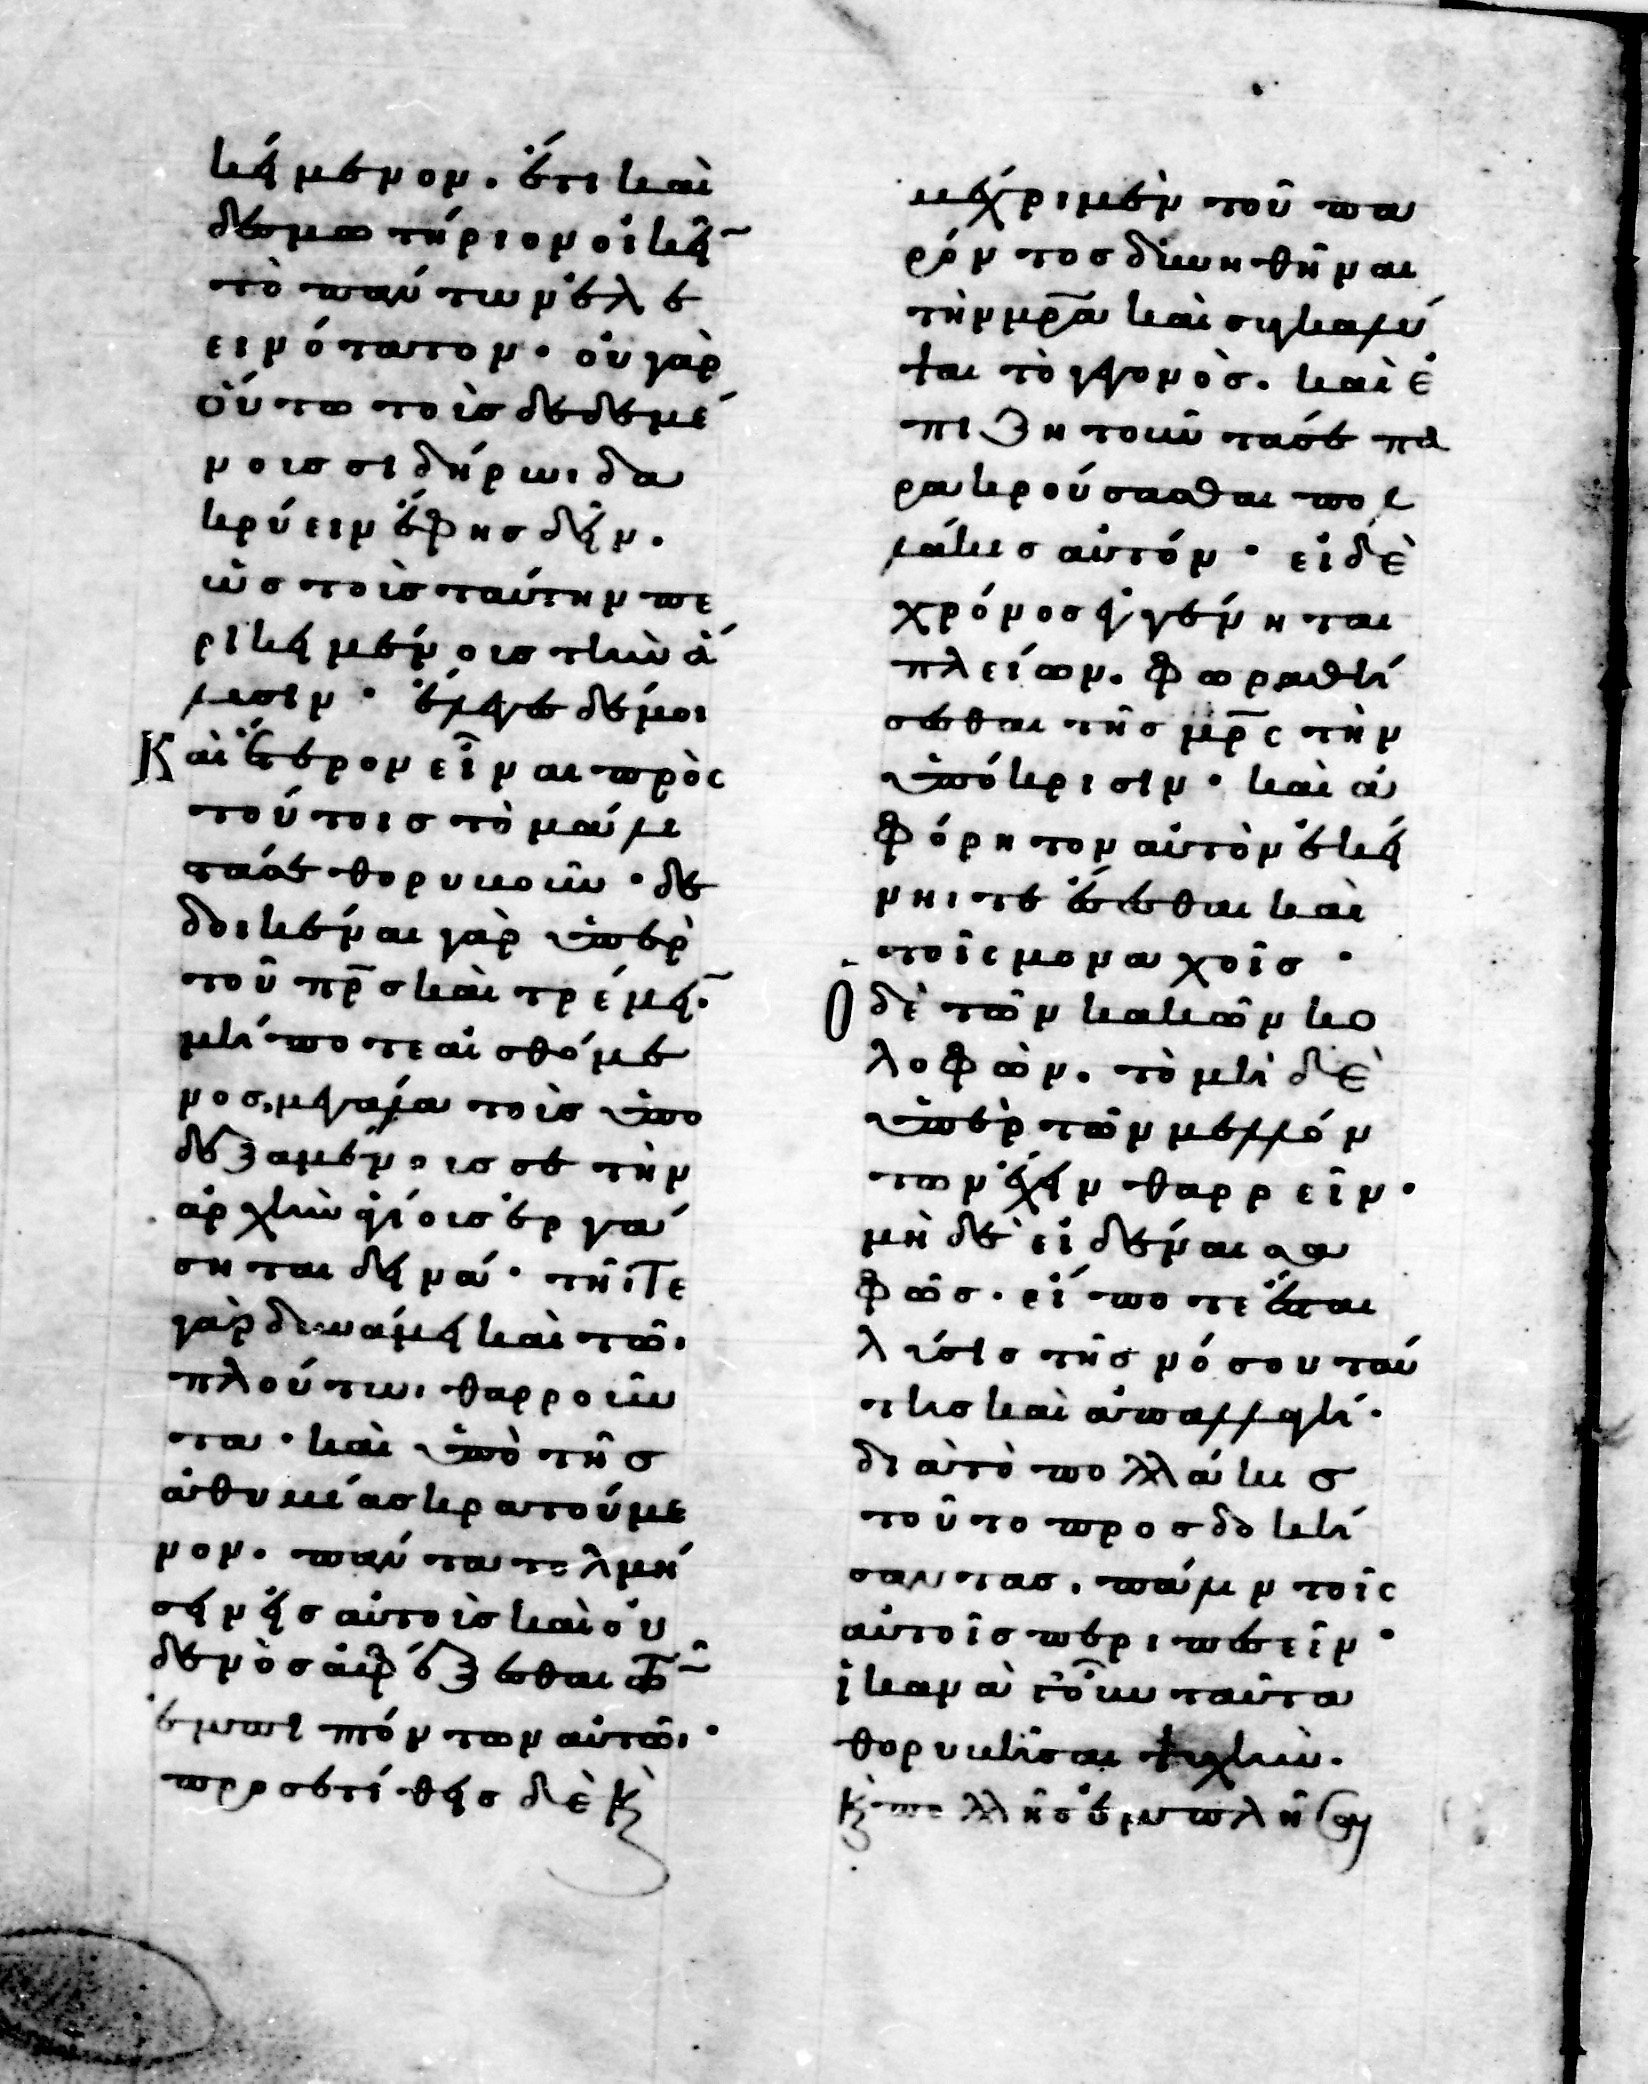 κείμενον. ἔτι καὶ
δεσμωτήριον οἰκεῖ
τὸ πάντων ἐλε
εινότατον· οὐ γὰρ
οὕτω τοῖς δεδεμέ
νοις σιδήρωι δα
κρύειν ἔφης δεῖν.
ὡς τοῖς ταύτην πε
ρικειμένοις τὴν ἅ
λυσιν· ἔλεγες δέ μοι
Καὶ ἕτερον εἶναι πρὸς
τούτοις τὸ μάλι
στά σε θορυβοῦν· δε
δοικέναι γὰρ ὑπὲρ
τοῦ πρς καὶ τρέμειν
μήποτε αἰσθόμε
νος, μεγάλα τοὺς ὑπο
δεξαμένους σε τὴν
ἀρχὴν ἁγίους ἐργά
σηται δεινά· τῆι τε
γὰρ δυνάμει καὶ τῶι
πλούτωι θαρροῦν
τα· καὶ ὑπὸ τῆς
ἀθυμίας κρατούμε
νον. πάντα τολμή
σειν εἰς αὐτοὺς καὶ οὐ
δενὸς ἀφέξεσθαι τῶν
ἐμπιπτόντων αὐτῶι·
προσετίθεις δὲ κ
μέχρι μὲν τοῦ πα
ρόντος δυνηθῆναι
τὴν μρα καὶ συγκαλύ
ψαι τὸ γεγονὸς. καὶ ἐ
πιζητοῦντά σε πα
ρακρούσασθαι πολ
λάκις αὐτόν· εἰ δὲ
χρόνος ἐγγένηται
πλείων. φωραθή
σεσθαι τῆς μρς τὴν
ὑπόκρισιν· καὶ ἀ
φόρητον αὐτὸν ἐκεί
νηι τε ἔσεσθαι καὶ
τοῖς μοναχοῖς·
Ὁ δὲ τῶν κακῶν κο
λοφὼν. τὸ μὴ δὲ
ὑπὲρ τῶν μελλόν
των ἔχειν θαρρεῖν·
μὴ δὲ εἰδέναι σα
φῶς. εἴ ποτε ἔσται
λύσις τῆς νόσου ταύ
της καὶ ἀπαλλαγή·
διὰ τὸ πολλάκις
τοῦτο προσδοκή
σαντας. πάλιν τοῖς
αὐτοῖς περιπεσεῖν·
ἱκανὰ μὲν οὖν ταῦτα
θορυβῆσαι ψυχὴν.
κ πολλῆς ἐμπλῆσαι